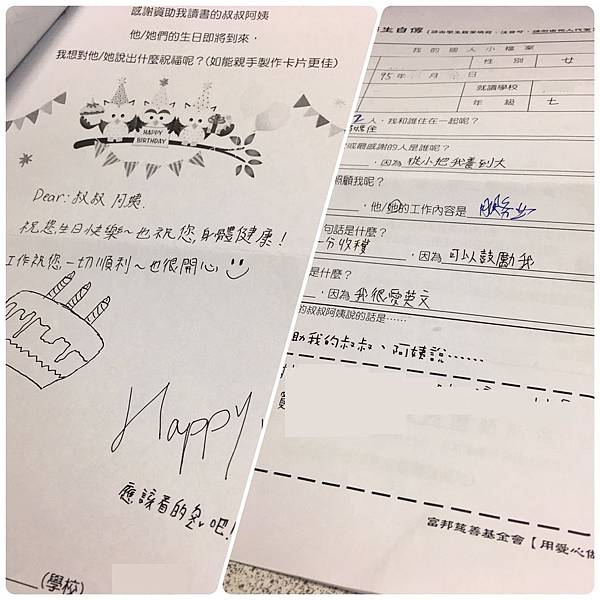 感謝資助我讀書的叔叔阿姨
他/她們的生日即將到來，
我想對他/她說出什麼祝福呢？(如能親手製作卡片更佳)
HAPPY
BIRTHDAY
Dear:叔叔 阿姨
祝您生日快樂～也祝您,身體健康！
工作祝您,一切順利～也很開心
Happy
應該看的懂吧！
(學校)
生自傳
我的個人小檔案
性別 女
95年
就讀學校
年級 七
2人，我和誰住在一起呢？
或最感謝的人是誰呢？
，因為 從小把我養到大
照顧我呢？
，他/她的工作內容是 服務業
句話是什麼？
一分收穫，因為 可以鼓勵我
是什麼？
，因為 我很愛英文
的叔叔阿姨說的話是……
助我的叔叔、阿姨說……
富邦慈善基金會【用愛心做